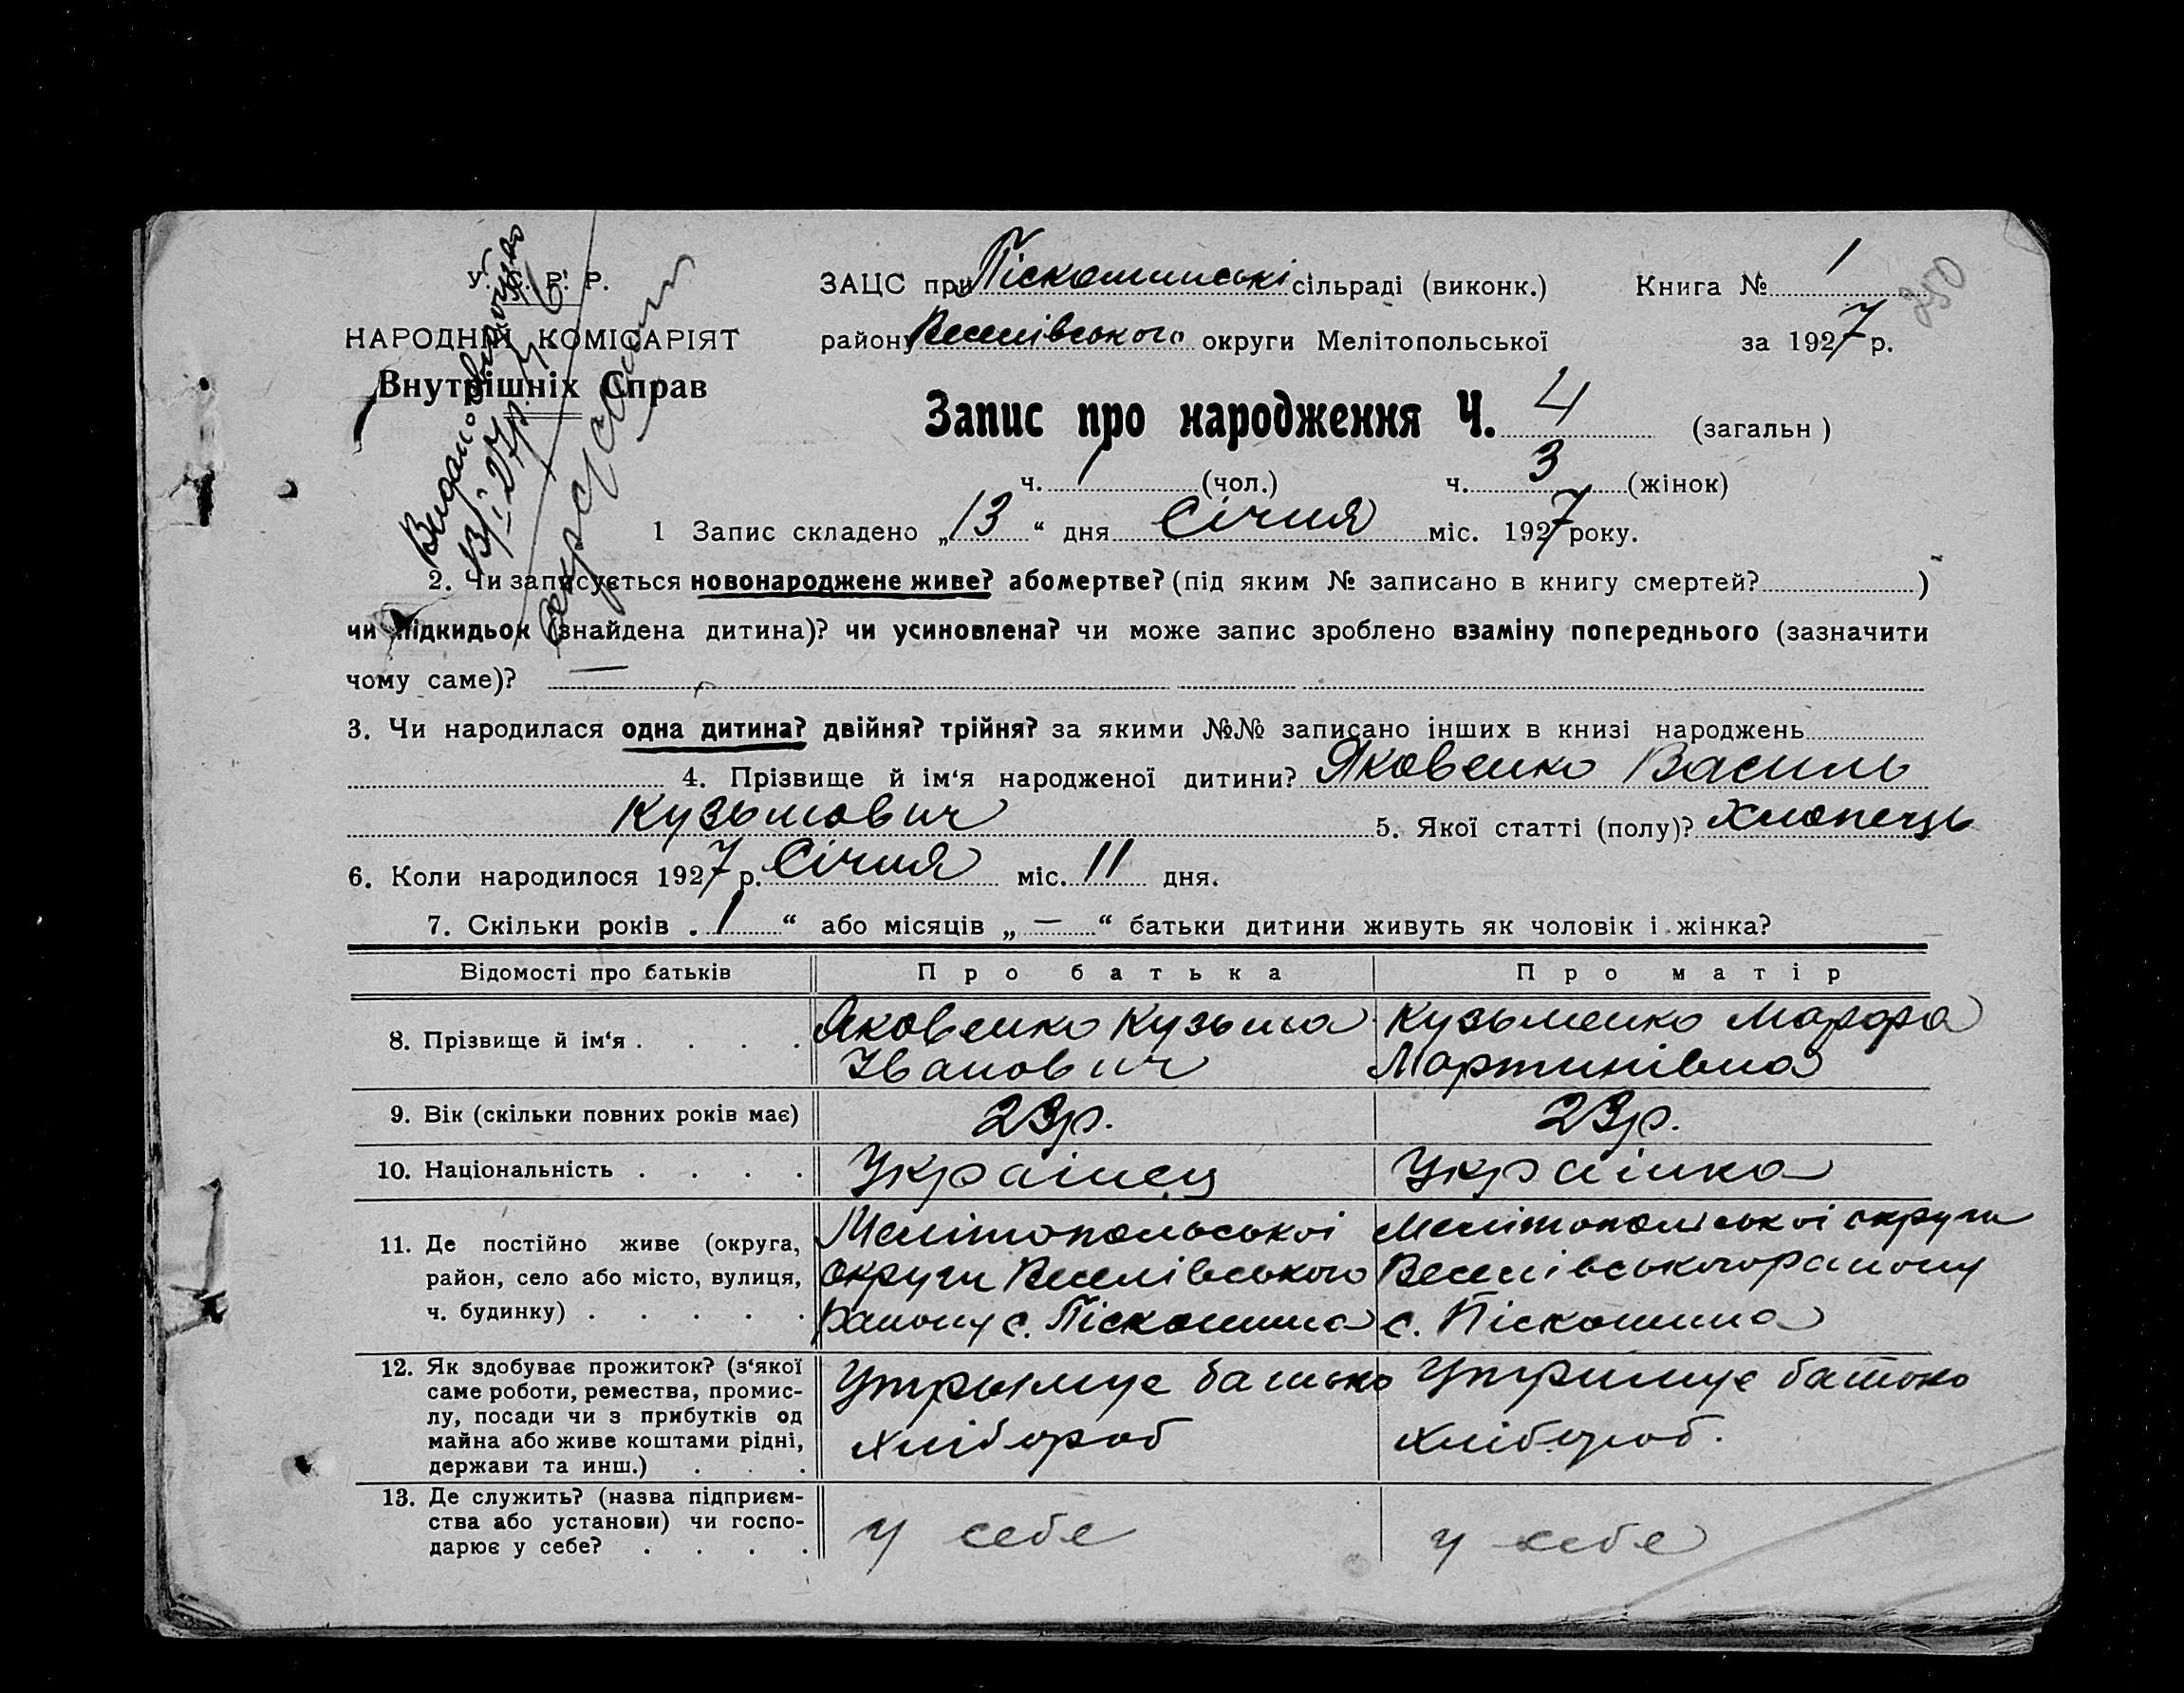 У. С. Р. Р.
НАРОДНІЙ КОМІСАРІЯТ
Внутрішніх Справ
ЗАЦС при Піскошинські сільраді (виконк.) Книга № 1
250
району Веселівського округи Мелітопольської за 1927 р.
Запис про народження Ч. 4 (загальн)
ч. 1 (чол.) ч. 3 (жінок)
Видано
13/I 27р
1 Запис складено „13“ дня Січня міс. 1927 року.
2. Чи записується новонароджене живе? або мертве? (під яким № записано в книгу смертей? )
чи підкидьок (знайдена дитина)? чи усиновлена? чи може запис зроблено взаміну попереднього (зазначити
чому саме)? —
3. Чи народилася одна дитина? двійня? трійня? за якими №№ записано інших в книзі народжень
4. Прізвище й ім‘я народженої дитини? Яковенко Василь
Кузьмович 5. Якої статті (полу)? Хлопець
6. Коли народилося 1927 р. Січня міс. 11 дня.
7. Скільки років . 1 “ або місяців „ — “ батьки дитини живуть як чоловік і жінка?
Відомості про батьків Про батька Про матір
8. Прізвище й ім‘я . . . . Яковенко Кузьма Кузьменко Марфа
Іванович Мартинівна
9. Вік (скільки повних років має) 23р. 23р.
10. Національність . . . . Українец Українка
11. Де постійно живе (округа, Мелітопольської Мелітопольської округи
район, село або місто, вулиця, округи Веселівського Веселівського району
ч. будинку) . . . . . району с. Піскошина с. Піскошина
12. Як здобуває прожиток? (з‘якої Утрымує батько Утримує батько
саме роботи, ремества, промис-
лу, посади чи з прибутків од хлібороб хлібороб.
майна або живе коштами рідні,
держави та инш.) . . .
13. Де служить? (назва підприєм-
ства або установи) чи госпо- у себе у себе
дарює у себе? . . . .